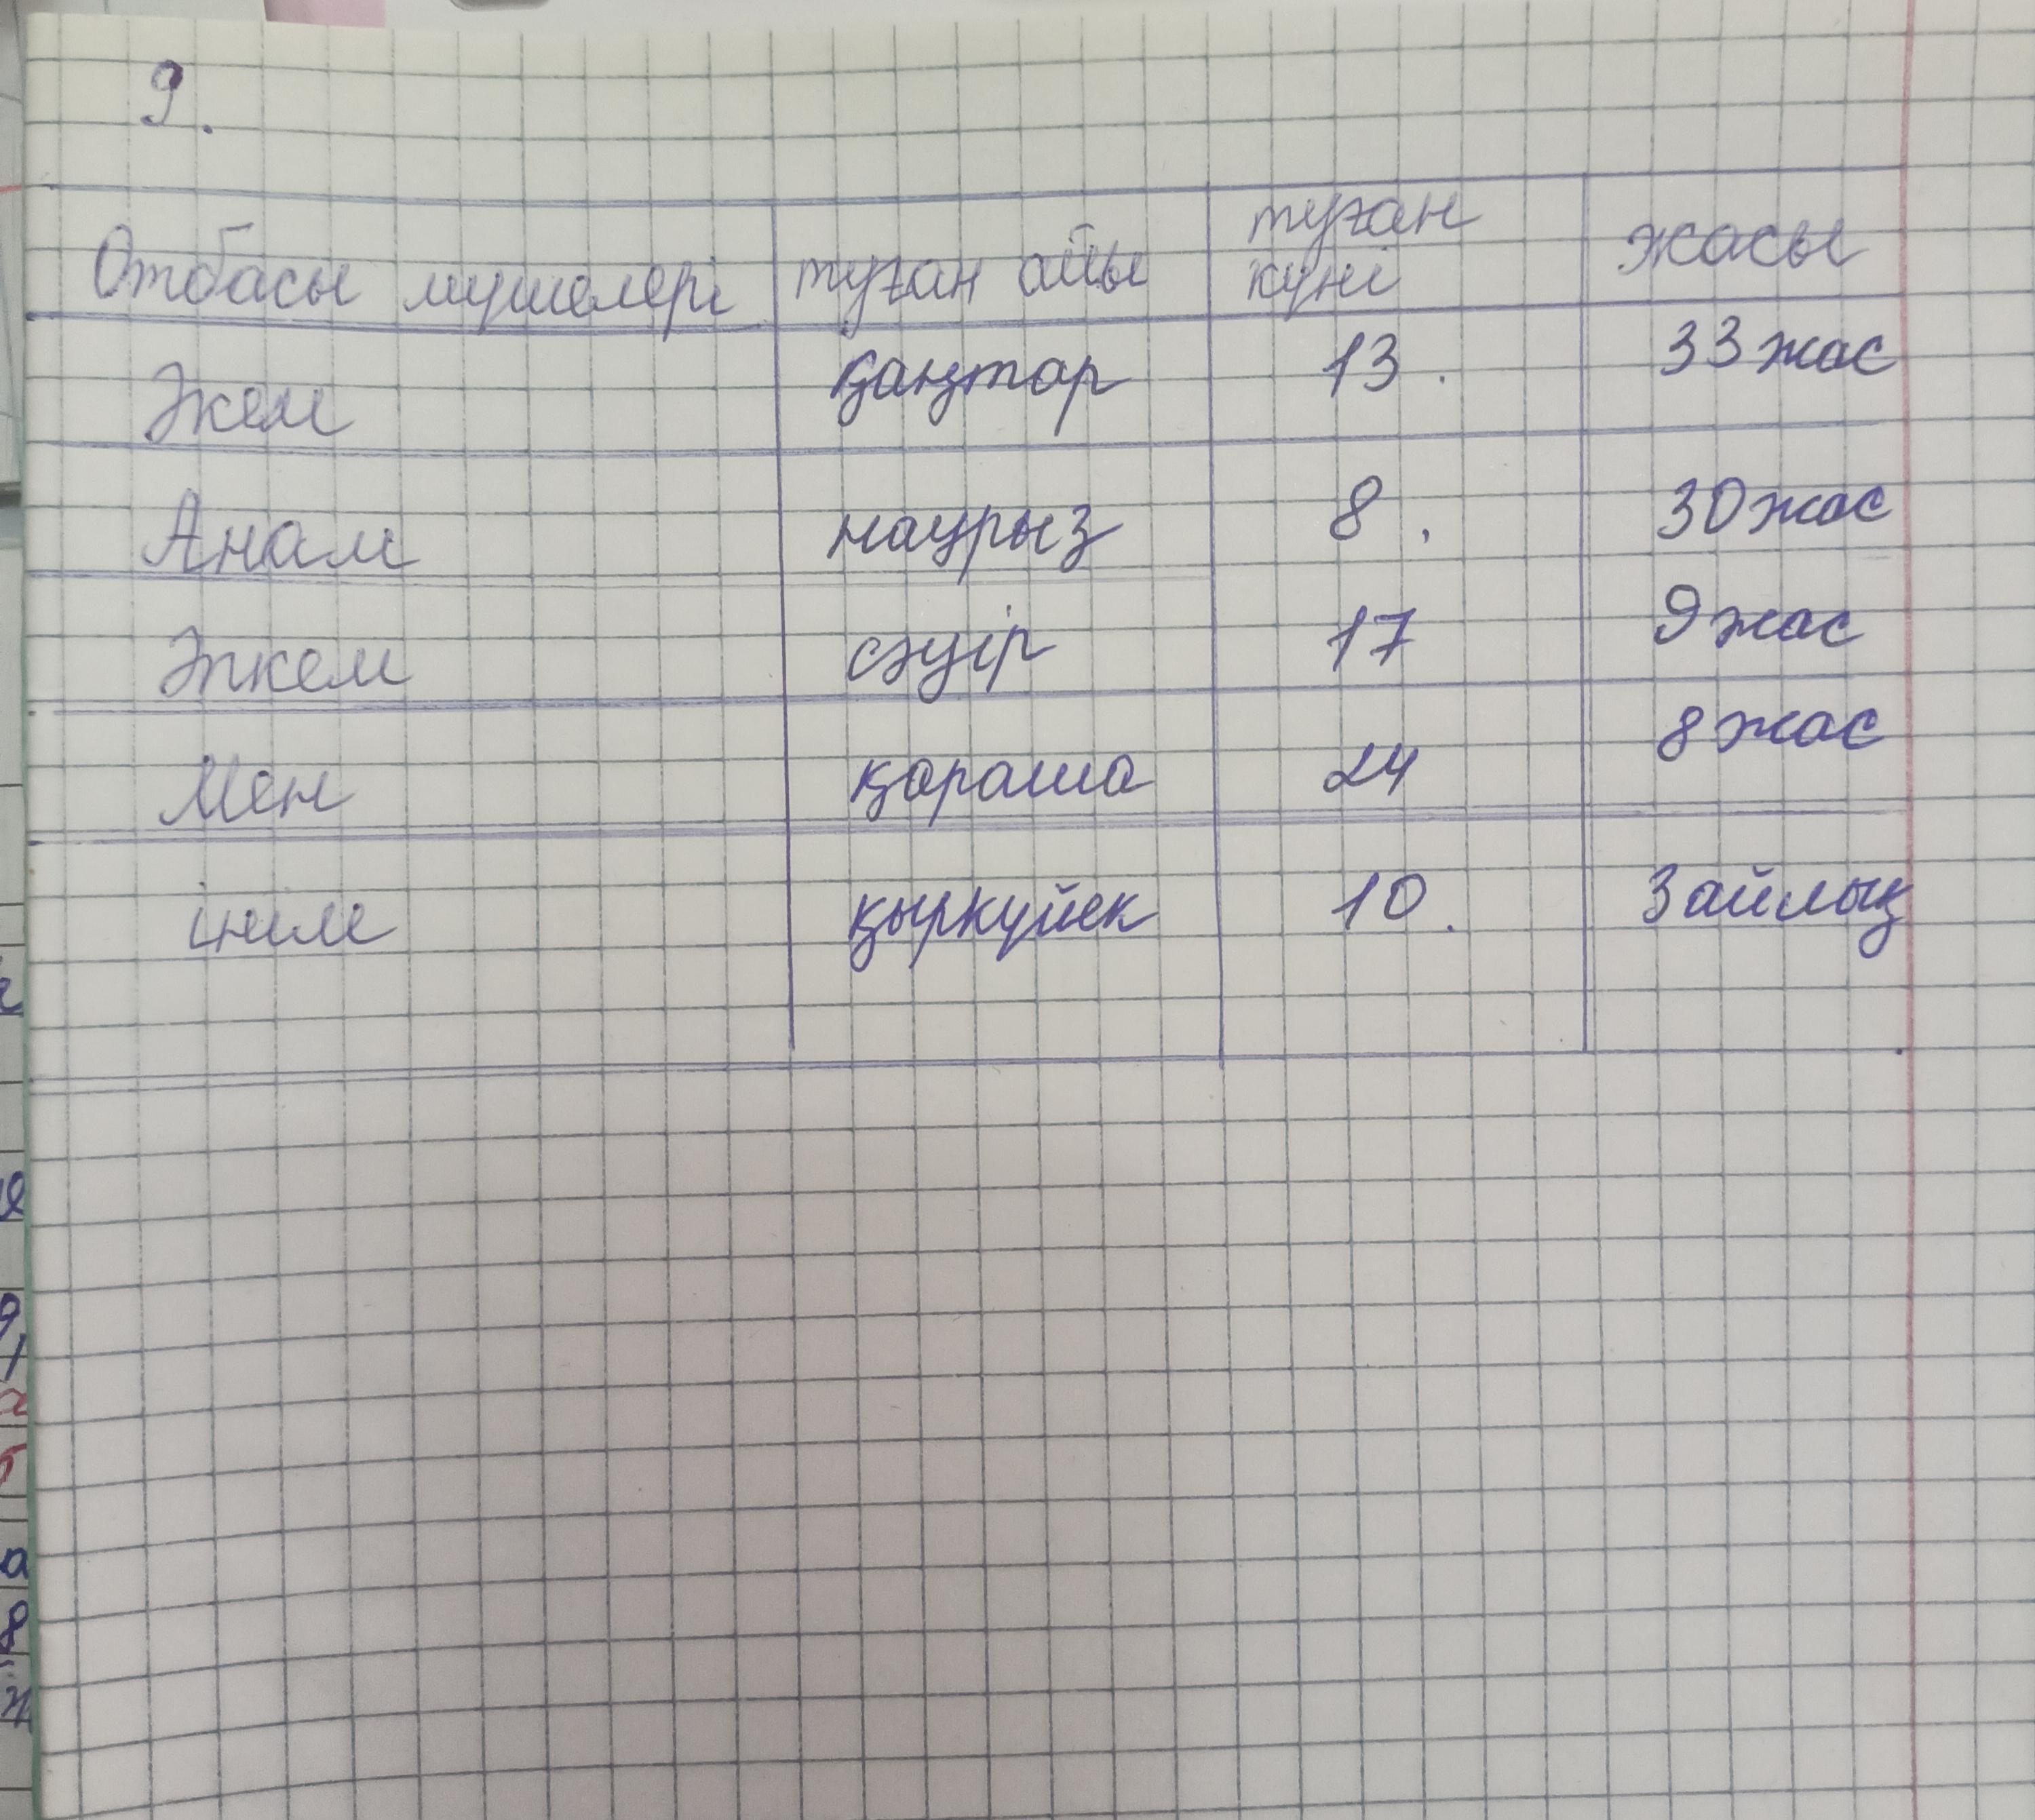 9.
Отбасы мүшелері туған айы туған күні жасы
Әкем қаңтар 13. 33 жас
Анам наурыз 8. 30 жас
Әпкем сәуір 17 9 жас
Мен қараша 24 8 жас
інім қыркүйек 10. 3 айлық